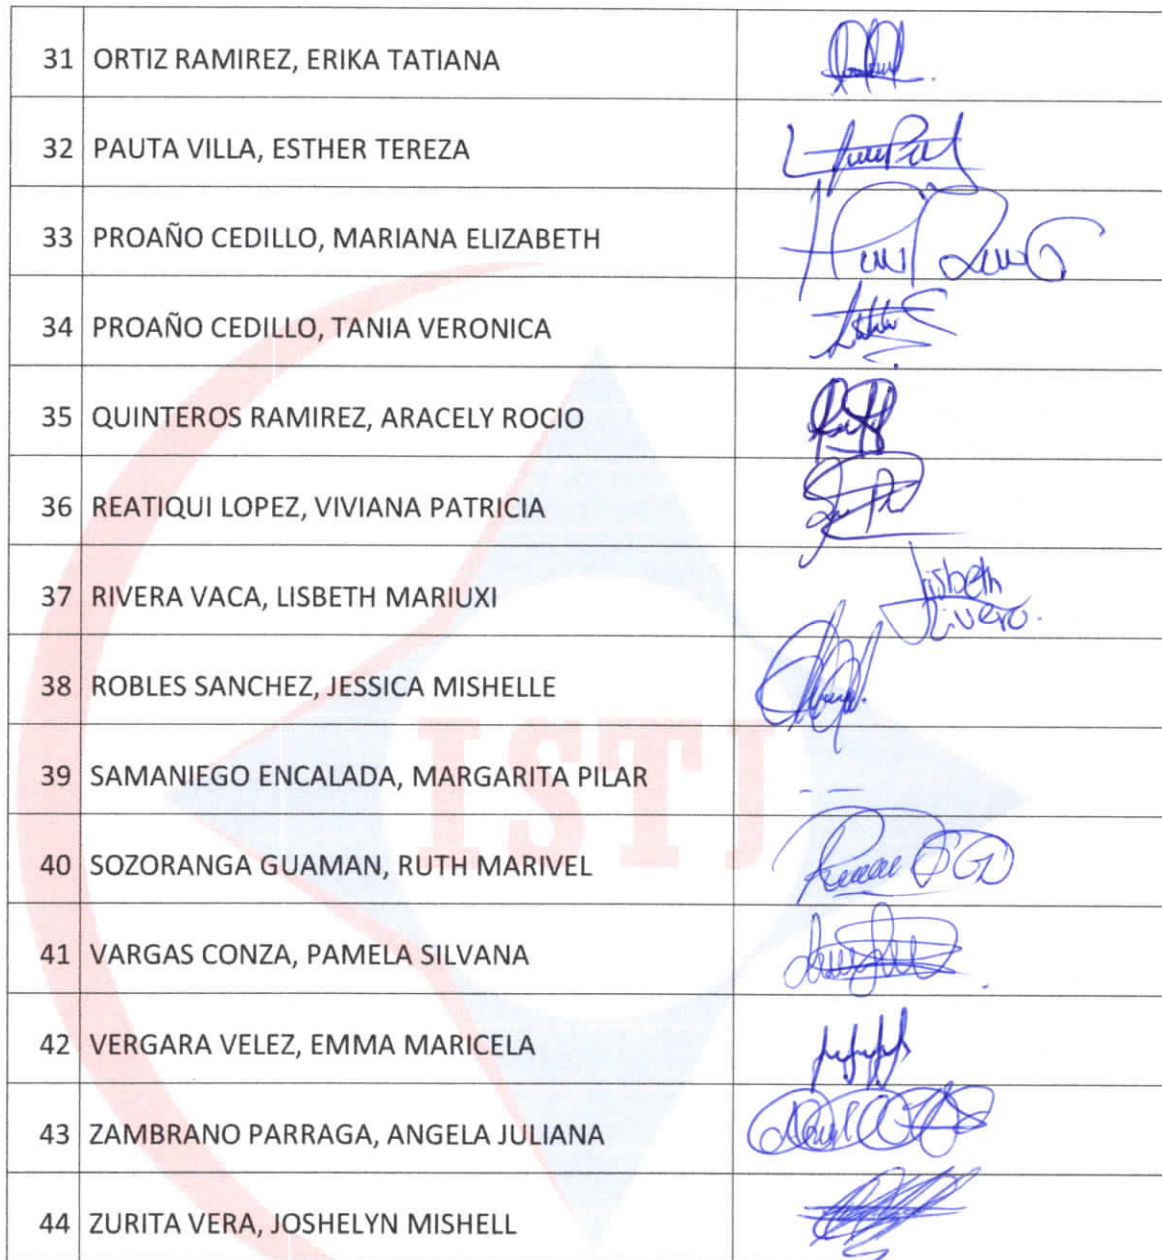 31 ORTIZ RAMIREZ, ERIKA TATIANA
32 PAUTA VILLA, ESTHER TEREZA
33 PROAÑO CEDILLO, MARIANA ELIZABETH
34 PROAÑO CEDILLO, TANIA VERONICA
35 QUINTEROS RAMIREZ, ARACELY ROCIO
36 REATIQUI LOPEZ, VIVIANA PATRICIA
37 RIVERA VACA, LISBETH MARIUXI
Lisbeth
38 ROBLES SANCHEZ, JESSICA MISHELLE
39 SAMANIEGO ENCALADA, MARGARITA PILAR
ISTJ
40 SOZORANGA GUAMAN, RUTH MARIVEL
41 VARGAS CONZA, PAMELA SILVANA
42 VERGARA VELEZ, EMMA MARICELA
43 ZAMBRANO PARRAGA, ANGELA JULIANA
44 ZURITA VERA, JOSHELYN MISHELL